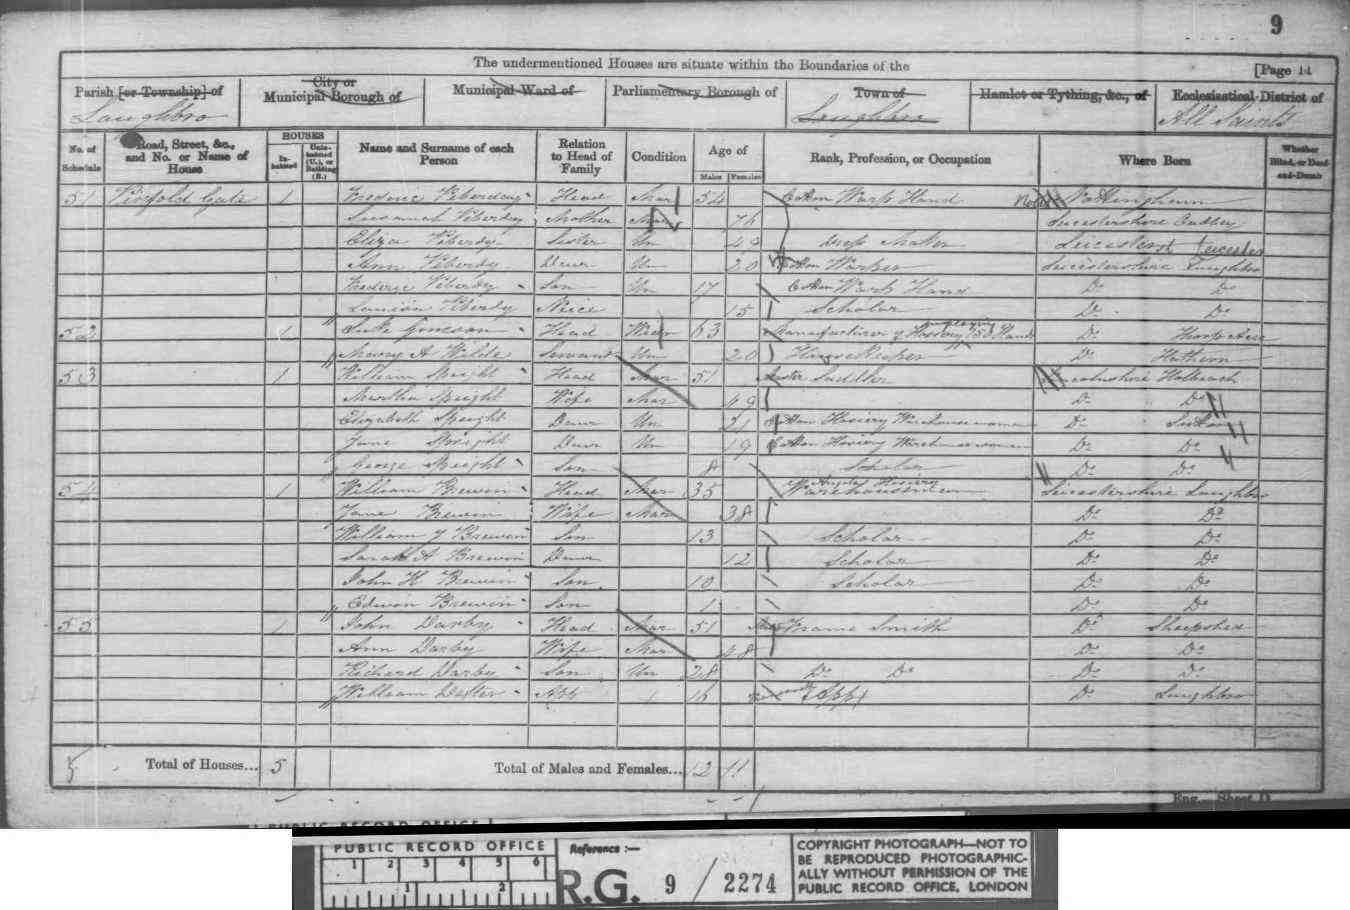 9
The undermentioned Houses are situate within the Boundaries of the [Page 11
Parish [or Township] of City or Municipal Borough of Municipal Ward of Parliamentary Borough of Town of Hamlet or Tything, &c., of Ecclesiastical District of
Loughbro Loughbro All Saints
No. of Schedule Road, Street, &c., and No. or Name of House HOUSES Inhabited Uninhabited (U.), or Building (B.) Name and Surname of each Person Relation to Head of Family Condition Age of Males Females Rank, Profession, or Occupation Where Born Whether Blind, or Deaf-and-Dumb
51 Pinfold Gate 1 Frederic Head Mar 54 Cotton Warp Hand Notts Nottingham
Susannah Mother 76 Leicestershire
Eliza Sister Un Leicester
Ann Daur Un 20 Cotton Leicestershire Loughbro
Frederic Son Un 17 Cotton Warp Hand Do Do
Neice 15 Scholar Do Do
52 1 Head Widr 63 Manufacturer of Hosiery employing 150 Hands Do Thorp Acre
Mary A Wilde Servant Un 20 House Keeper Do Hathern
53 1 William Speight Head Mar 51 Master Saddler Holbeach
Martha Speight Wife Mar 49 Do Do
Elizabeth Speight Daur Un 21 Cotton Hosiery Warehouse woman Do
Jane Speight Daur Un 19 Cotton Hosiery Warehouse woman Do Do
George Speight Son 8 Scholar Do Do
54 1 William Brewin Head Mar 35 Angola Hosiery Warehouseman Leicestershire Loughbro
Jane Brewin Wife Mar 38 Do Do
William J Brewin Son 13 Scholar Do Do
Sarah A Brewin Daur 12 Scholar Do Do
John H Brewin Son 10 Scholar Do Do
Edwin Brewin Son 1 Do Do
55 1 John Darby Head Mar 51 Frame Smith Do Shepshed
Ann Darby Wife Mar 48 Do Do
Richard Darby Son Un 28 Do Do Do Do
William App 16 Do Loughbro
5 Total of Houses... 5 Total of Males and Females... 12 11
Eng.—Sheet D.
PUBLIC RECORD OFFICE
PUBLIC RECORD OFFICE
1 2 3 4 5 6
1 2
Reference :—
R.G. 9 / 2274
COPYRIGHT PHOTOGRAPH—NOT TO
BE REPRODUCED PHOTOGRAPHIC-
ALLY WITHOUT PERMISSION OF THE
PUBLIC RECORD OFFICE, LONDON